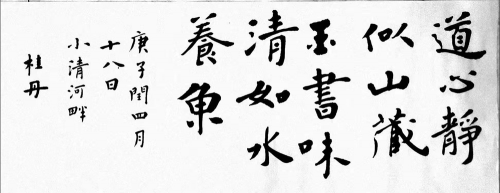 道心靜
似山藏
玉書味
清如水
養魚
庚子閏四月
十八日
小清河畔
桂丹